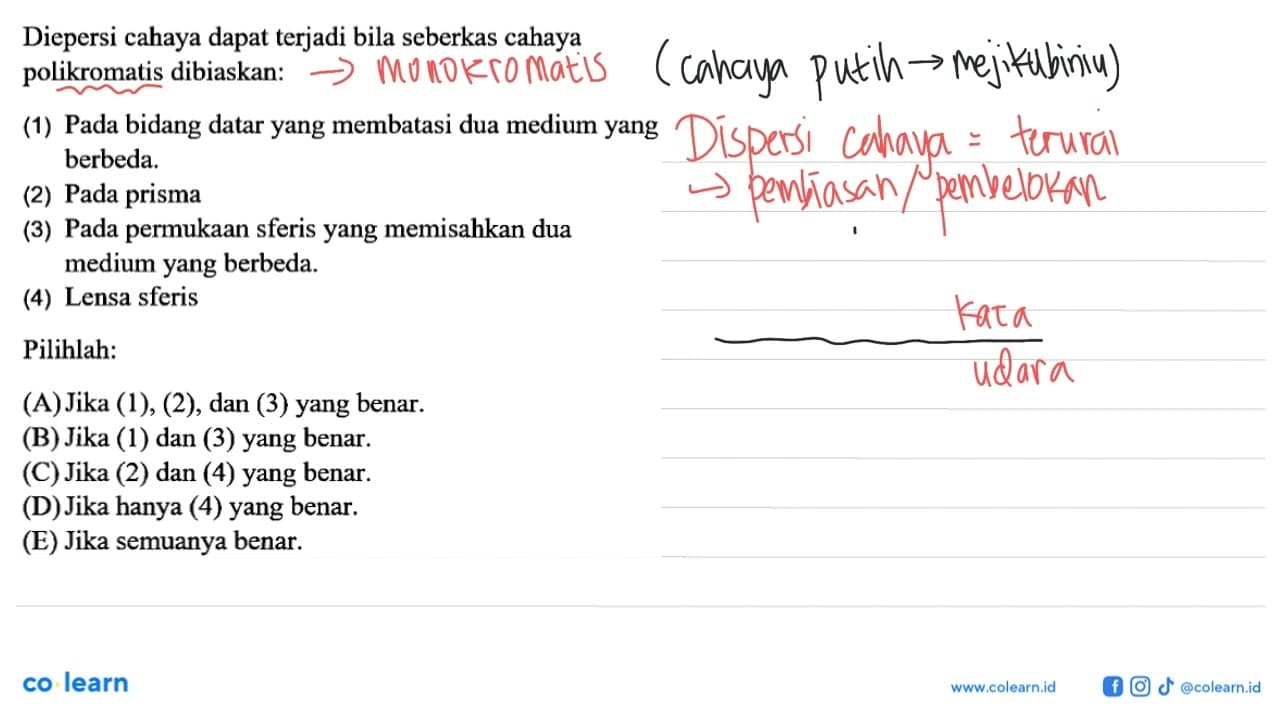 Diepersi cahaya dapat terjadi bila seberkas cahaya
polikromatis dibiaskan: → monokromatis (cahaya putih → mejikubiniu)
(1) Pada bidang datar yang membatasi dua medium yang
berbeda.
(2) Pada prisma
(3) Pada permukaan sferis yang memisahkan dua
medium yang berbeda.
(4) Lensa sferis
Pilihlah:
(A) Jika (1), (2), dan (3) yang benar.
(B) Jika (1) dan (3) yang benar.
(C) Jika (2) dan (4) yang benar.
(D) Jika hanya (4) yang benar.
(E) Jika semuanya benar.
Dispersi cahaya = terurai
↪ pembiasan/pembelokan
kaca
udara
co learn
www.colearn.id
@colearn.id